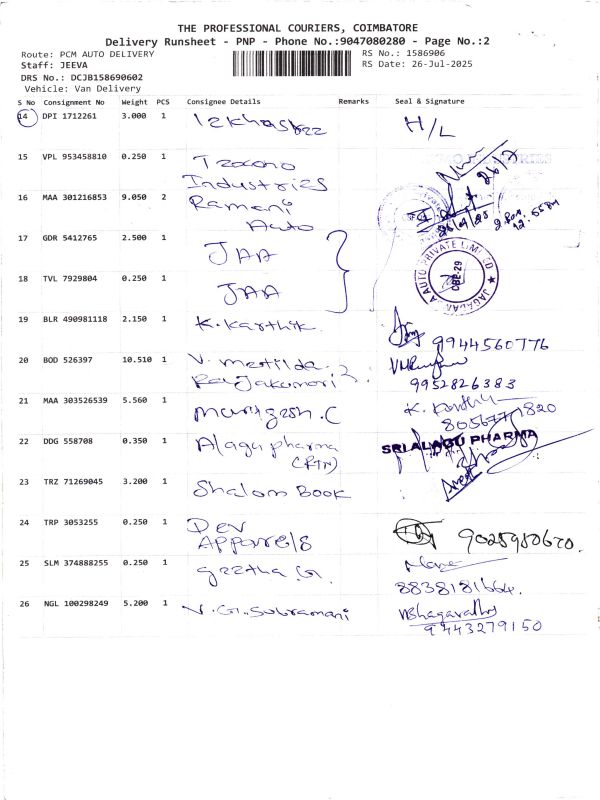 THE PROFESSIONAL COURIERS, COIMBATORE
Delivery Runsheet - PNP - Phone No.:9047080280 - Page No.:2
Route: PCM AUTO DELIVERY RS No.: 1586906
Staff: JEEVA RS Date: 26-Jul-2025
DRS No.: DCJB158690602
Vehicle: Van Delivery
S No Consignment No Weight PCS Consignee Details Remarks Seal & Signature
14 DPI 1712261 3.000 1 H/L
15 VPL 953458810 0.250 1
Industries
16 MAA 301216853 9.050 2 Ramani
Auto
17 GDR 5412765 2.500 1 JAA
AUTO PRIVATE LIMITED
CBE-29
18 TVL 7929804 0.250 1 JAA
19 BLR 490981118 2.150 1 K. Karthik
9944560776
20 BOD 526397 10.510 1 V. Metilda
Rajakumari
9952826383
21 MAA 303526539 5.560 1 Murugesh.C
K.
22 DDG 558708 0.350 1 Alagu pharma
(RTN)
SRI ALAGU PHARMA
23 TRZ 71269045 3.200 1 Shalom Book
24 TRP 3053255 0.250 1 Dev
Apparels
9025980620.
25 SLM 374888255 0.250 1 geetha.G.
8838181664.
26 NGL 100298249 5.200 1 V.G.Subramani
9443279150